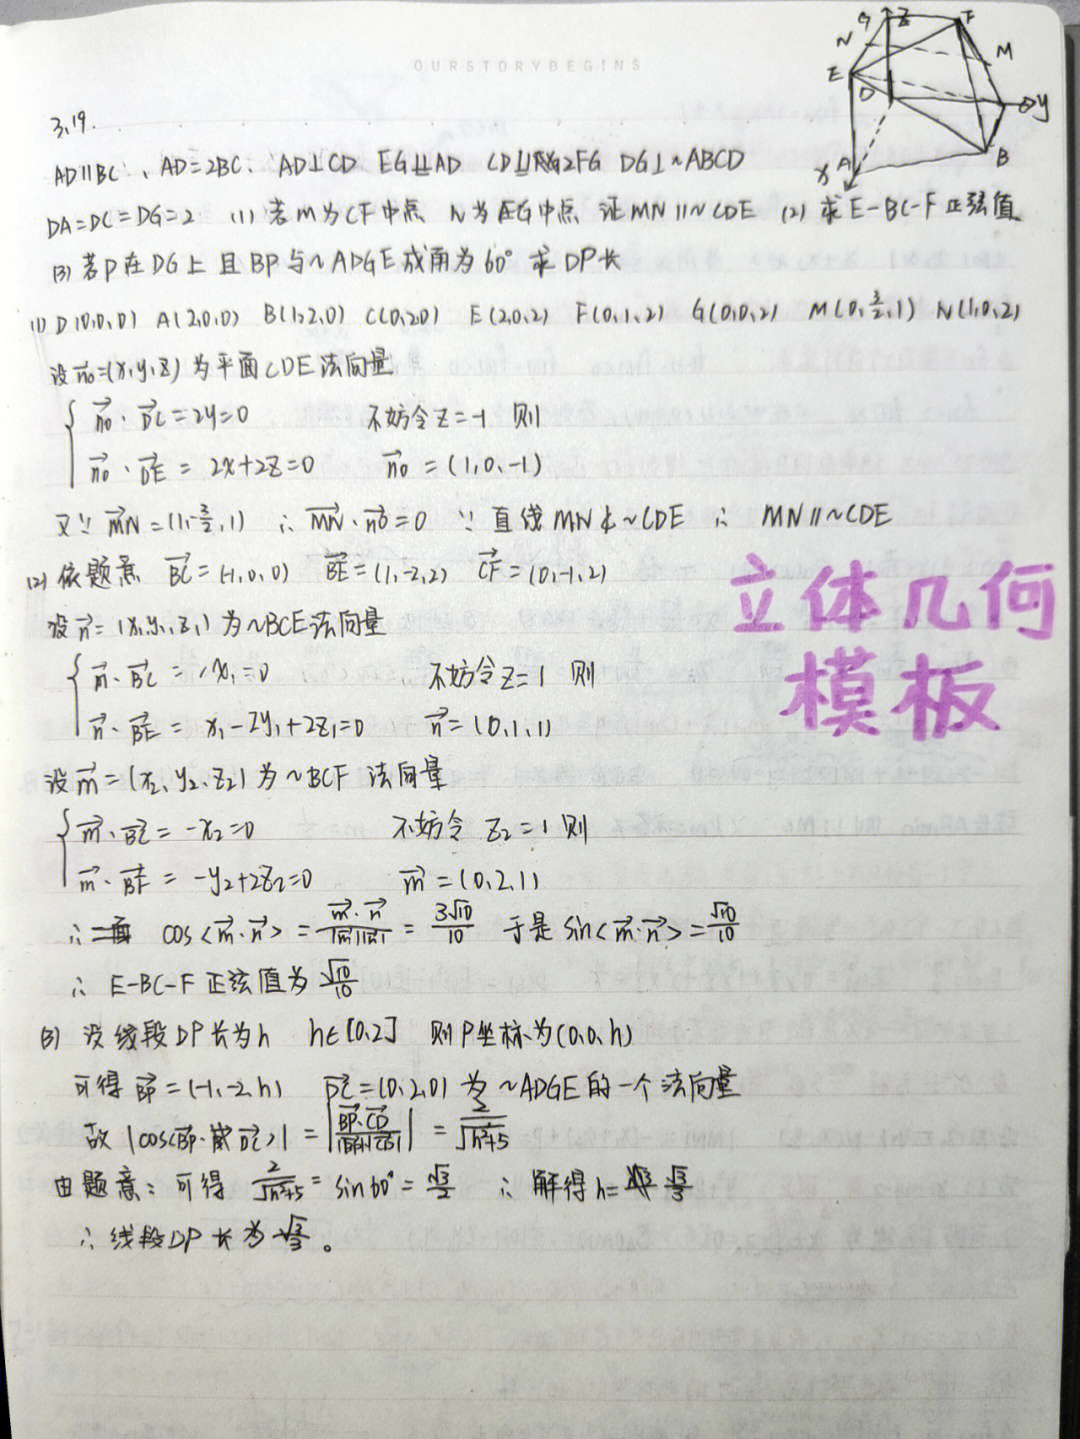 OURSTORYBEGINS
G Z F
N M
E
D y
x A B
3.19.
AD∥BC、AD=2BC、AD⊥CD EG∥AD CD∥FG CD=2FG DG⊥~ABCD
DA=DC=DG=2 (1) 若M为CF中点 N为EG中点 证MN∥~CDE (2) 求E-BC-F正弦值
(3) 若P在DG上 且BP与~ADGE成角为60° 求DP长
(1) D(0,0,0) A(2,0,0) B(1,2,0) C(0,2,0) E(2,0,2) F(0,1,2) G(0,0,2) M(0,3/2,1) N(1,0,2)
设n₀=(x,y,z)为平面CDE法向量
n₀·DC=2y=0 不妨令z=-1 则
n₀·DE=2x+2z=0 n₀=(1,0,-1)
又∵MN=(1,-3/2,1) ∴MN·n₀=0 ∵直线MN⊄~CDE ∴ MN∥~CDE
(2) 依题意 BC=(-1,0,0) BE=(1,-2,2) CF=(0,-1,2)
设n=(x₁,y₁,z₁)为~BCE法向量
n·BC=-x₁=0 不妨令z=1 则
n·BE=x₁-2y₁+2z₁=0 n=(0,1,1)
设m=(x₂,y₂,z₂)为~BCF法向量
m·BC=-x₂=0 不妨令z₂=1 则
m·BF=-y₂+2z₂=0 m=(0,2,1)
∴ cos<m·n>=m·n/|m||n|=3√10/10 于是sin<m·n>=√10/10
∴ E-BC-F正弦值为√10/10
(3) 设线段DP长为h h∈[0,2] 则P坐标为(0,0,h)
可得BP=(-1,-2,h) DC=(0,2,0)为~ADGE的一个法向量
故|cos<BP·DC>|=|BP·CD/|BP||CD||=2/√h²+5
由题意:可得2/√h²+5=sin60°=√3/2 ∴解得h=√3/3
∴线段DP长为√3/3。
立体几何
模板